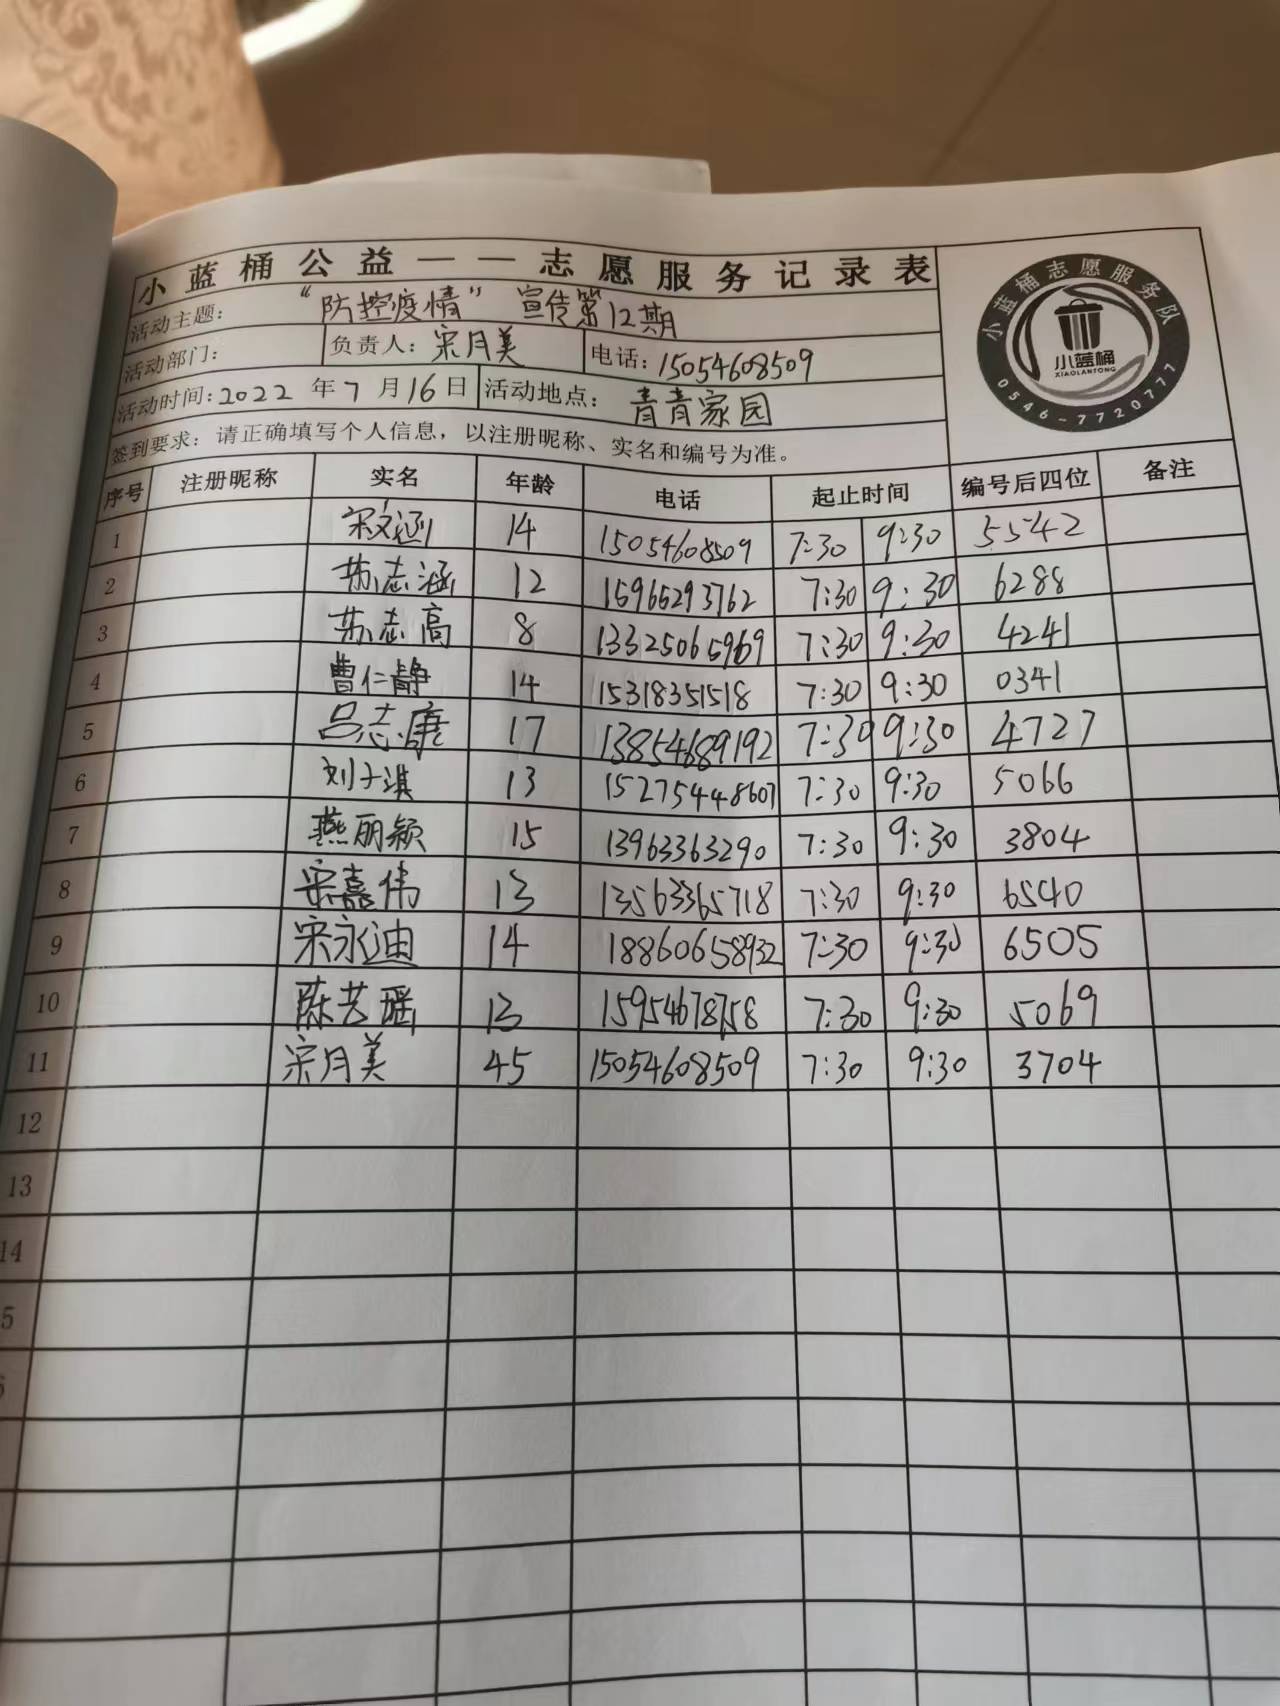 小蓝桶公益——志愿服务记录表
活动主题： “防控疫情” 宣传第12期
活动部门： 负责人：宋月美 电话：15054608509
活动时间：2022 年 7 月 16 日 活动地点： 青青家园
签到要求：请正确填写个人信息，以注册昵称、实名和编号为准。
小蓝桶志愿服务队
小蓝桶
XIAOLANTONG
0546-7720777
序号 注册昵称 实名 年龄 电话 起止时间 编号后四位 备注
1 宋文涵 14 15054608509 7:30 9:30 5542
2 苏志涵 12 15965293762 7:30 9:30 6288
3 苏志高 8 13325065969 7:30 9:30 4241
4 曹仁静 14 15318351518 7:30 9:30 0341
5 吕志康 17 13854689192 7:30 9:30 4727
6 刘子淇 13 15275448607 7:30 9:30 5066
7 燕丽颖 15 13963363290 7:30 9:30 3804
8 宋嘉伟 13 13563365718 7:30 9:30 6540
9 宋永迪 14 18860658932 7:30 9:30 6505
10 陈艺瑶 13 15954678758 7:30 9:30 5069
11 宋月美 45 15054608509 7:30 9:30 3704
12
13
14
5